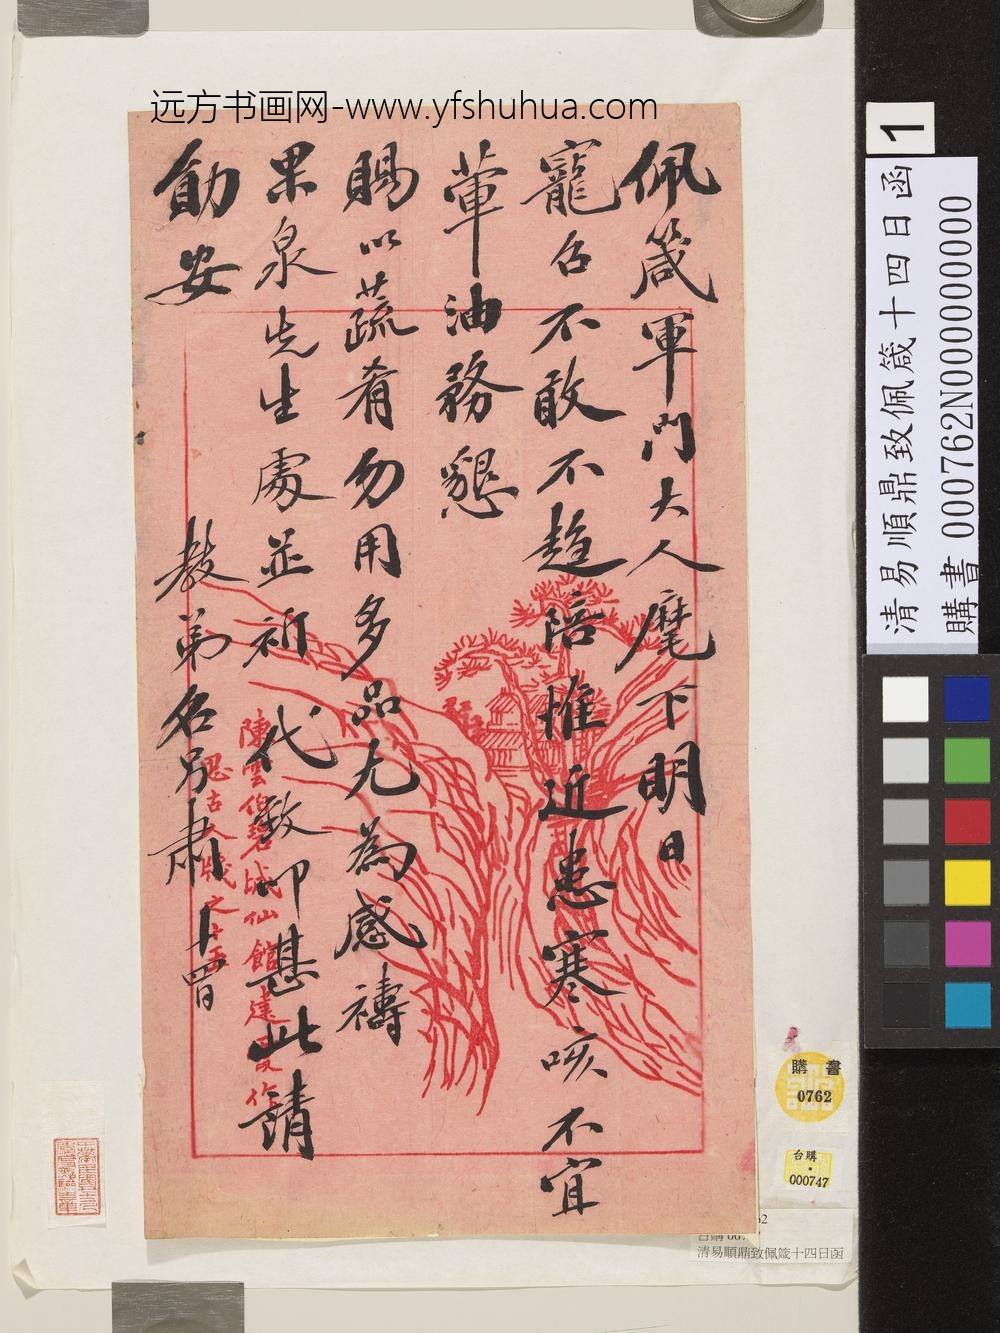 远方书画网-www.yfshuhua.com
佩箴軍門大人麾下明日
寵召不敢不趨陪惟近患寒咳不宜
葷油務懇
賜以蔬肴勿用多品尤為感禱
果泉先生處並祈代致叩甚此請
勛安
教弟名別肅 十四日
陳雲伯碧城仙館
思古人牋之十五
1
清易順鼎致佩箴十四日函
購書 000762N000000000
購書
0762
台購
000747
清易順鼎致佩箴十四日函